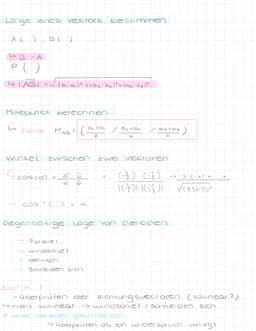 Länge eines Vektors bestimmen
A ( ) , B ( )
↳ B - A
P ( )
Mittelpunkt berechnen
↳ Formel: M_AB = ( a₁+b₁/2 / a₂+b₂/2 / a₃+b₃/2 )
Winkel zwischen zwei Vektoren
→ cos⁻¹ ( ) = α
Gegenseitige Lage von Geraden
→ Parallel
→ windschief
→ identisch
→ schneiden sich
- überprüfen der Richtungsvektoren (kollinear?)
↳ nicht kollinear → windschief / schneiden sich
→ überprüfen ob ein Widerspruch vorliegt